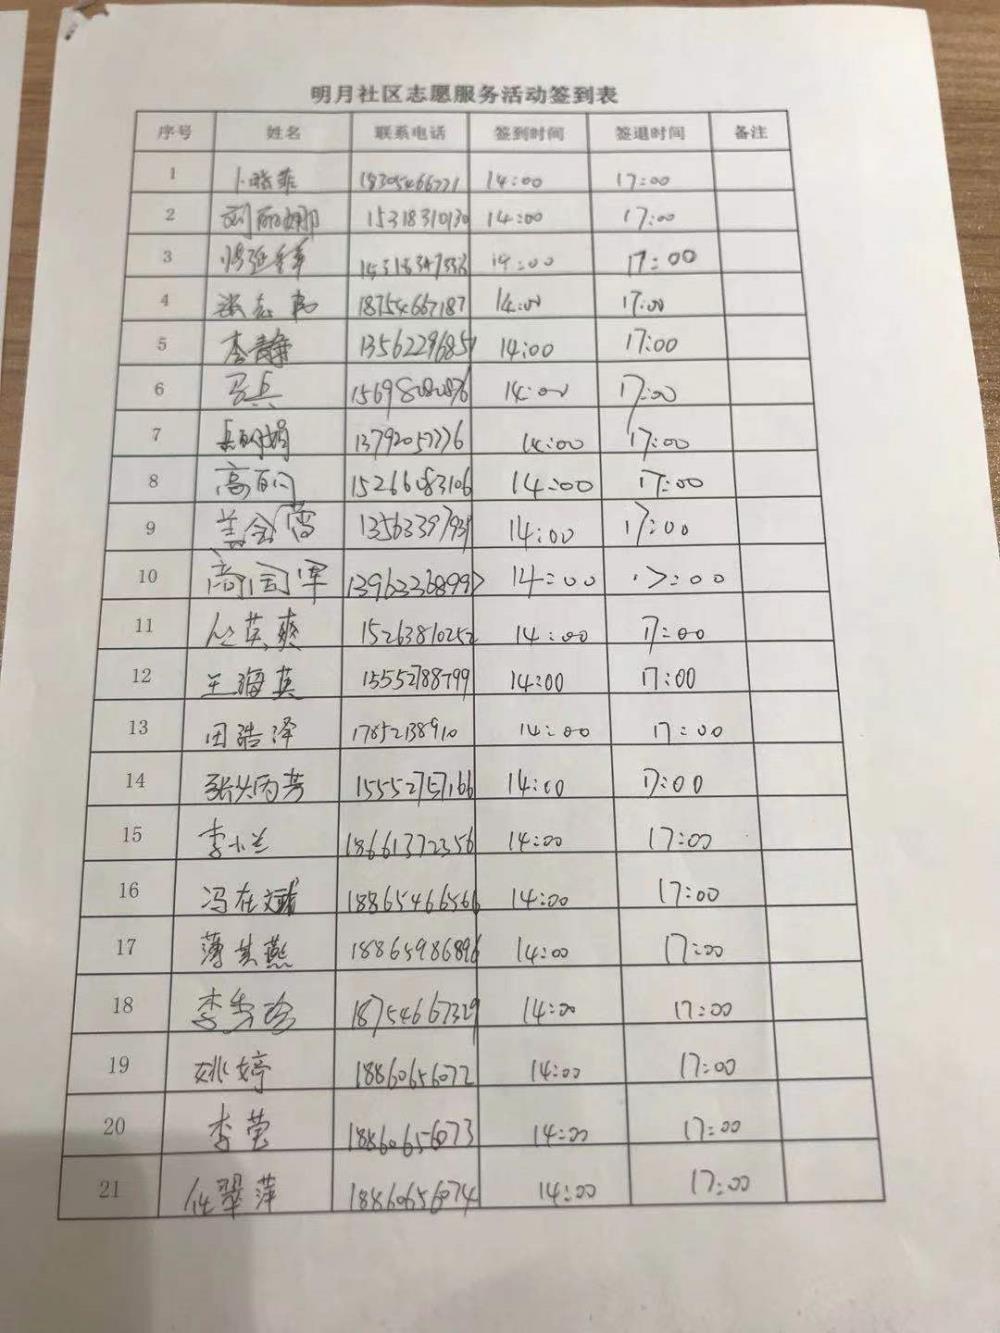 明月社区志愿服务活动签到表
序号 姓名 联系电话 签到时间 签退时间 备注
1 卜晓菲 18305466771 14:00 17:00
2 刘丽娜 15318310130 14:00 17:00
3 14:00 17:00
4 张志 18754667187 14:00 17:00
5 李静 1356229685 14:00 17:00
6 马兵 14:00 17:00
7 14:00 17:00
8 高丽 15266083106 14:00 17:00
9 姜会 14:00 17:00
10 高国军 14:00 17:00
11 丛英爽 15263810252 14:00 17:00
12 王海英 15552788799 14:00 17:00
13 田浩泽 17852138910 14:00 17:00
14 芳 15552757166 14:00 17:00
15 李小兰 18661372356 14:00 17:00
16 冯在斌 18865466566 14:00 17:00
17 薄其燕 18865986896 14:00 17:00
18 李秀珍 18754667329 14:00 17:00
19 姚婷 18860656072 14:00 17:00
20 李莹 18860656073 14:00 17:00
21 任翠萍 18860656074 14:00 17:00